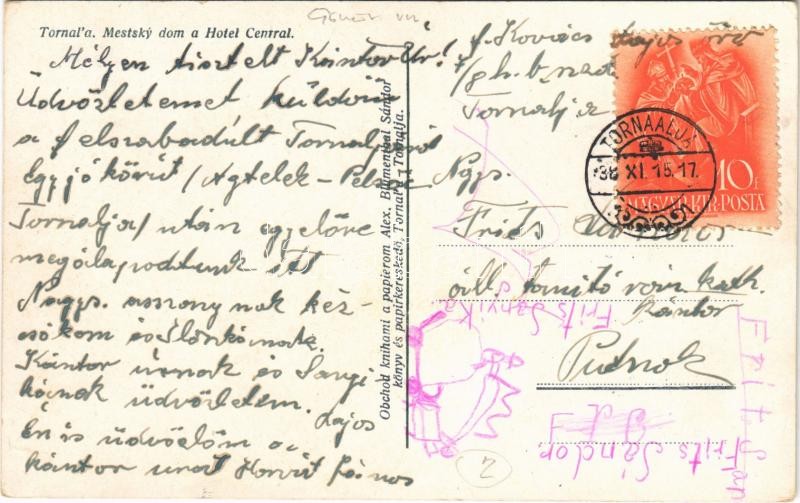 Tornal'a. Mestský dom a Hotel Central.
Mélyen tisztelt Kántor Úr!
Üdvözletemet küldöm
a felszabadult Tornaljáról
Egy jó körút / Agtelek - Pelsőc
Tornalja / után egyelőre
megállapodtunk itt
Nagys. asszonynak kéz-
csókom és Ilonkának.
Kántor úrnak és Sanyi
kának üdvözletem.
Lajos
Én is üdvözlöm a
kántor urat Horvát János
Obchod knihami a papierom Alex. Blumenthal Sándor
könyv és papírkereskedő, Tornal'a - Tornalja.
f. Kovács Lajos őrv
Tornalja
TORNAALJA
38 XI. 15. 17.
10f
MAGYAR KIR. POSTA
Nagys.
Frits
áll. tanító róm. kath.
kántor
Putnok
Frits Sanyika
Frits Sándor
Frits Sán
2